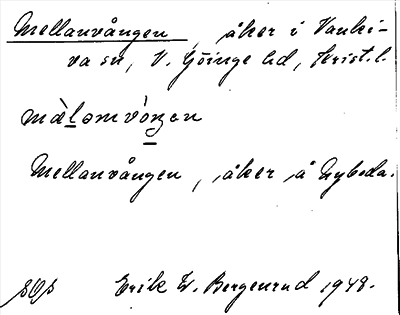 Mellanvången, åker i Vanki-
va sn, V. Göinge hd, Krist. l.
màlomvóŋen
Mellanvången, åker å Nyboda.
Erik W. Bergenrud 1948.